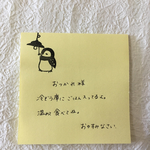 おつかれ様
冷ぞう庫に ごはん入ってるよ。
温め 食べてね。
おやすみなさい